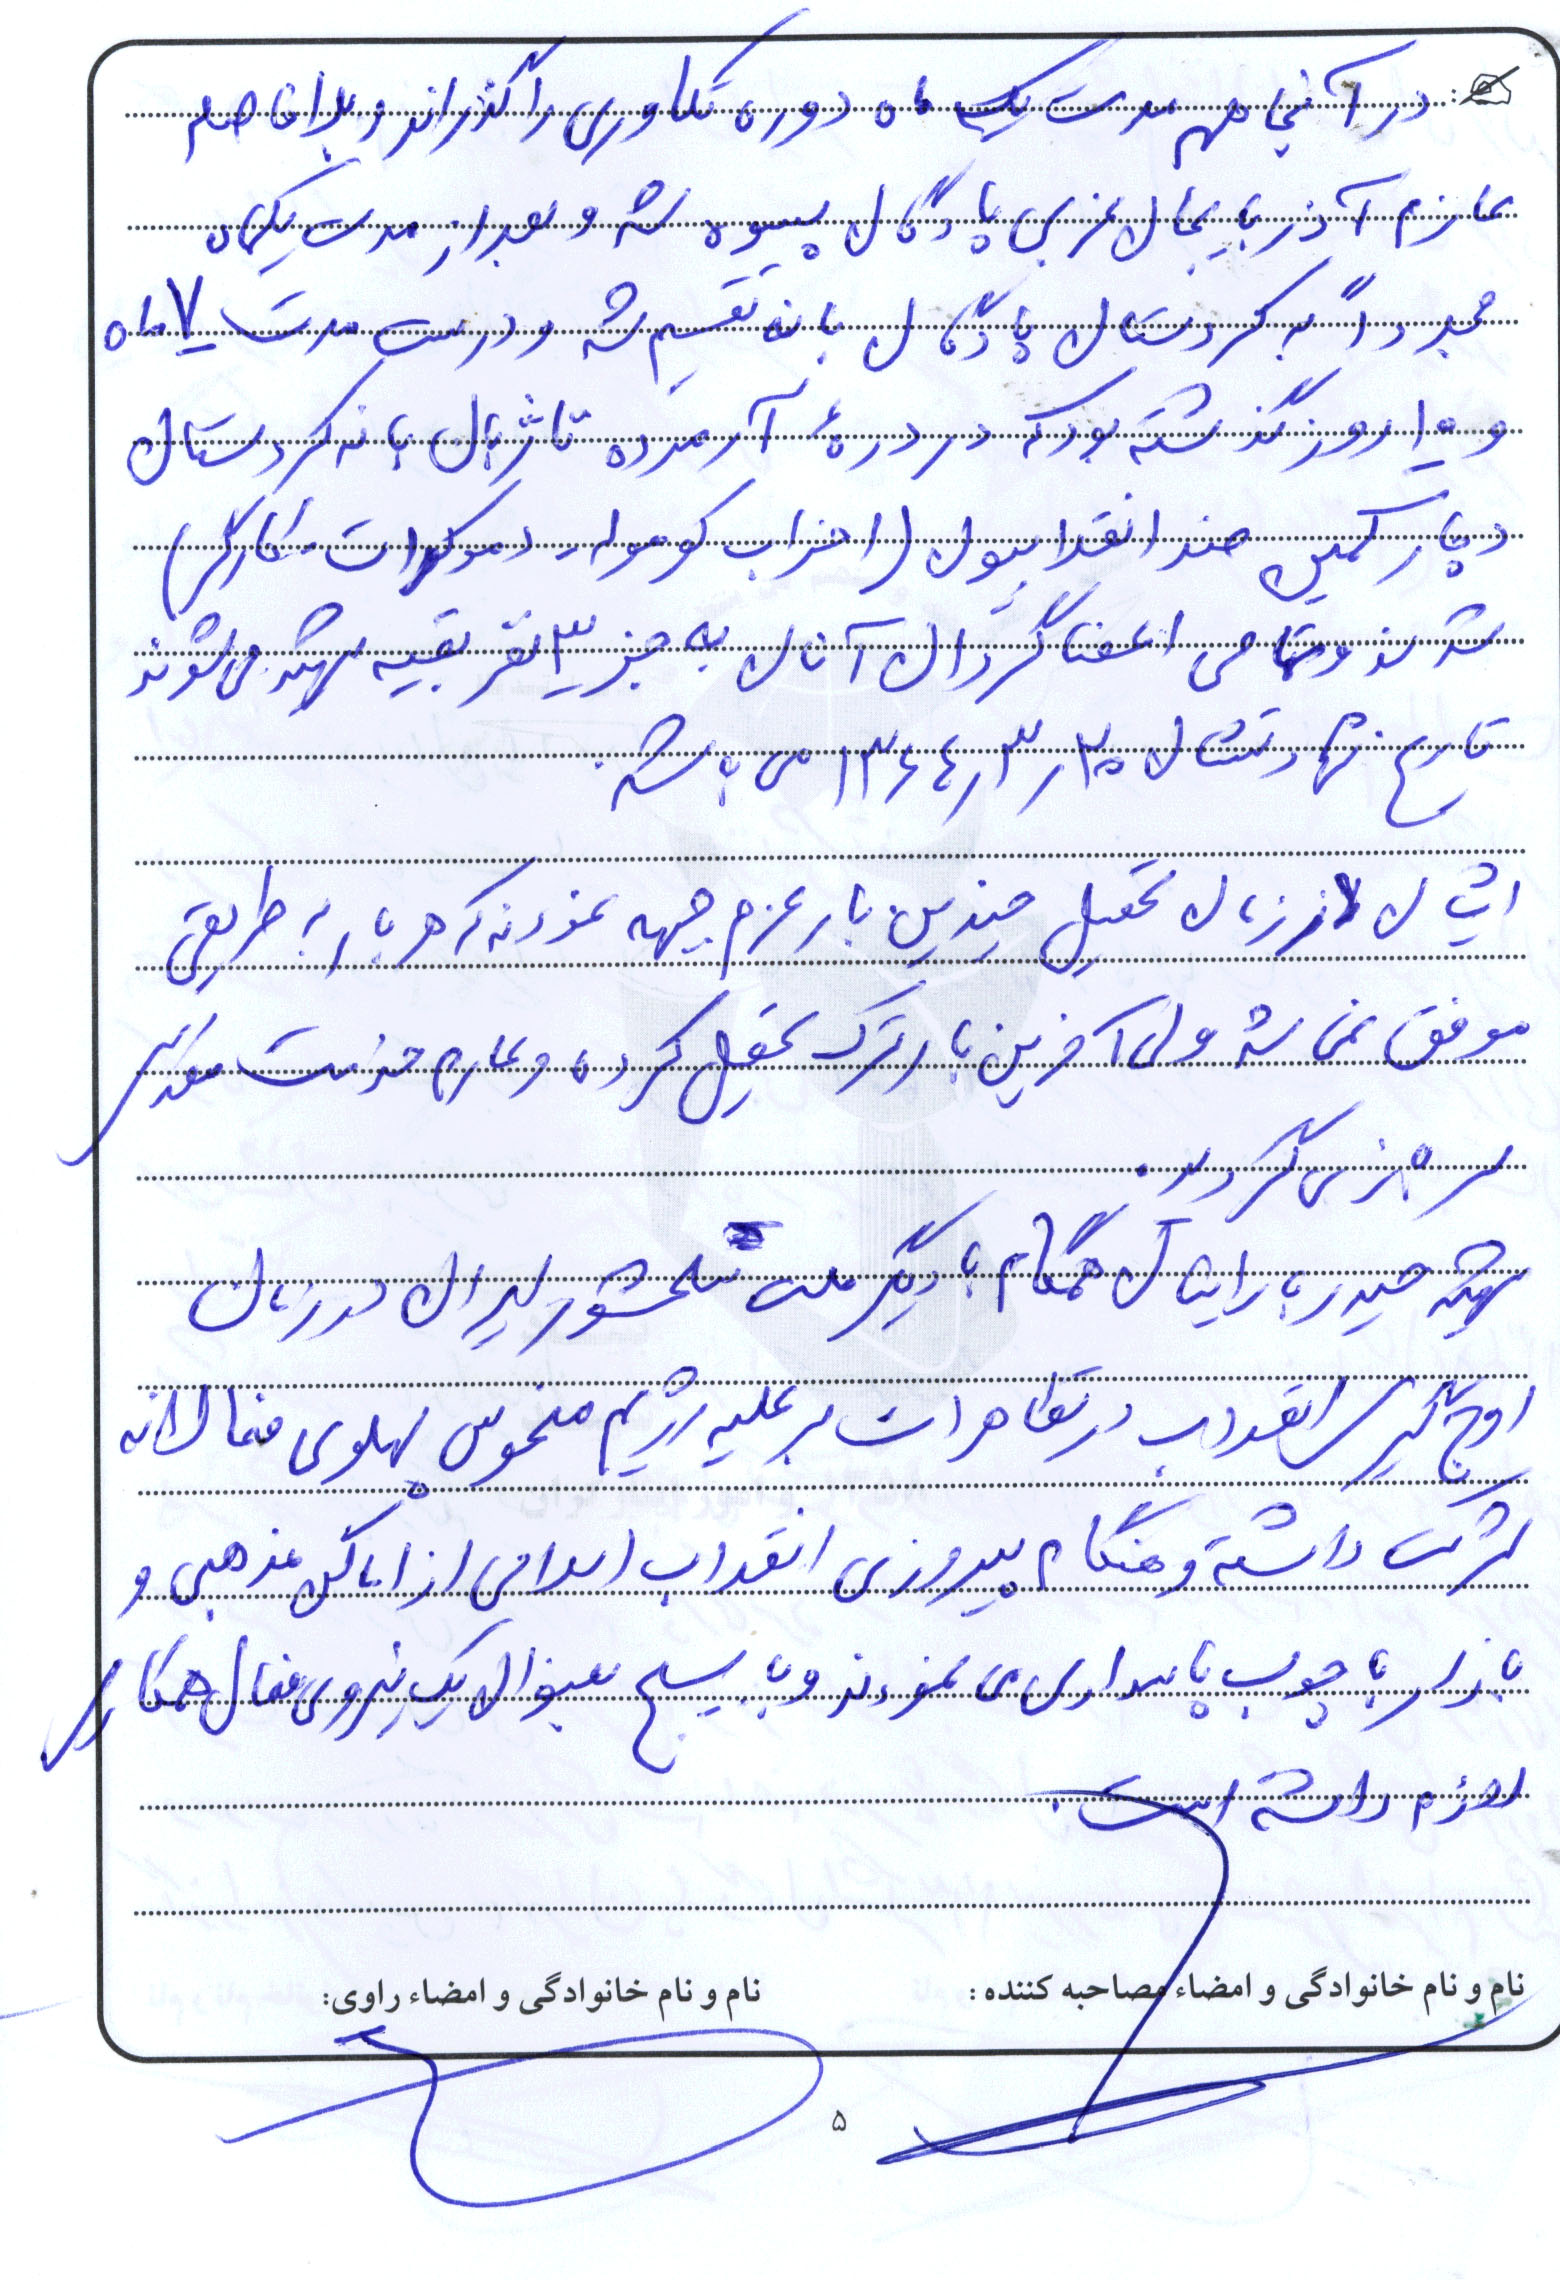 در آنجا هم مدت یک ماه دوره تکاوری را گذراند و بلافاصله
عازم آذربایجان غربی پادگان پسوه شد و بعد از مدت یکماه
مجدداً به کردستان پادگان بانه تقسیم شد و درست مدت ۷ ماه
و ۱۵ روز گذشته بود که در دره آرمرده تاژبان بانه کردستان
دچار کمین ضد انقلابیون (احزاب کومله - دموکرات - کارگر)
شدند و تمامی اعضا گردان آنان به جز ۳ نفر بقیه شهید می‌شوند
تاریخ شهادتشان ۱۳۶۴٫۳٫۲۵ می باشد.
ایشان در زمان تحصیل چندین بار عزم جبهه نمودند که هر بار به طریقی
موفق نمی شد ولی آخرین بار ترک تحصیل کرده و عازم خدمت مقدس
سربازی گردید.
شهید چندین بار ایشان همگام با دیگر ملت سلحشور ایران در زمان
اوج گیری انقلاب در تظاهرات بر علیه رژیم منحوس پهلوی فعالانه
شرکت داشته و هنگام پیروزی انقلاب اسلامی از اماکن مذهبی و
بازار با چوب پاسداری می نمودند و با بسیج بعنوان یک نیروی فعال همکاری
لازم داشته است.
نام و نام خانوادگی و امضاء مصاحبه کننده :
نام و نام خانوادگی و امضاء راوی:
۵